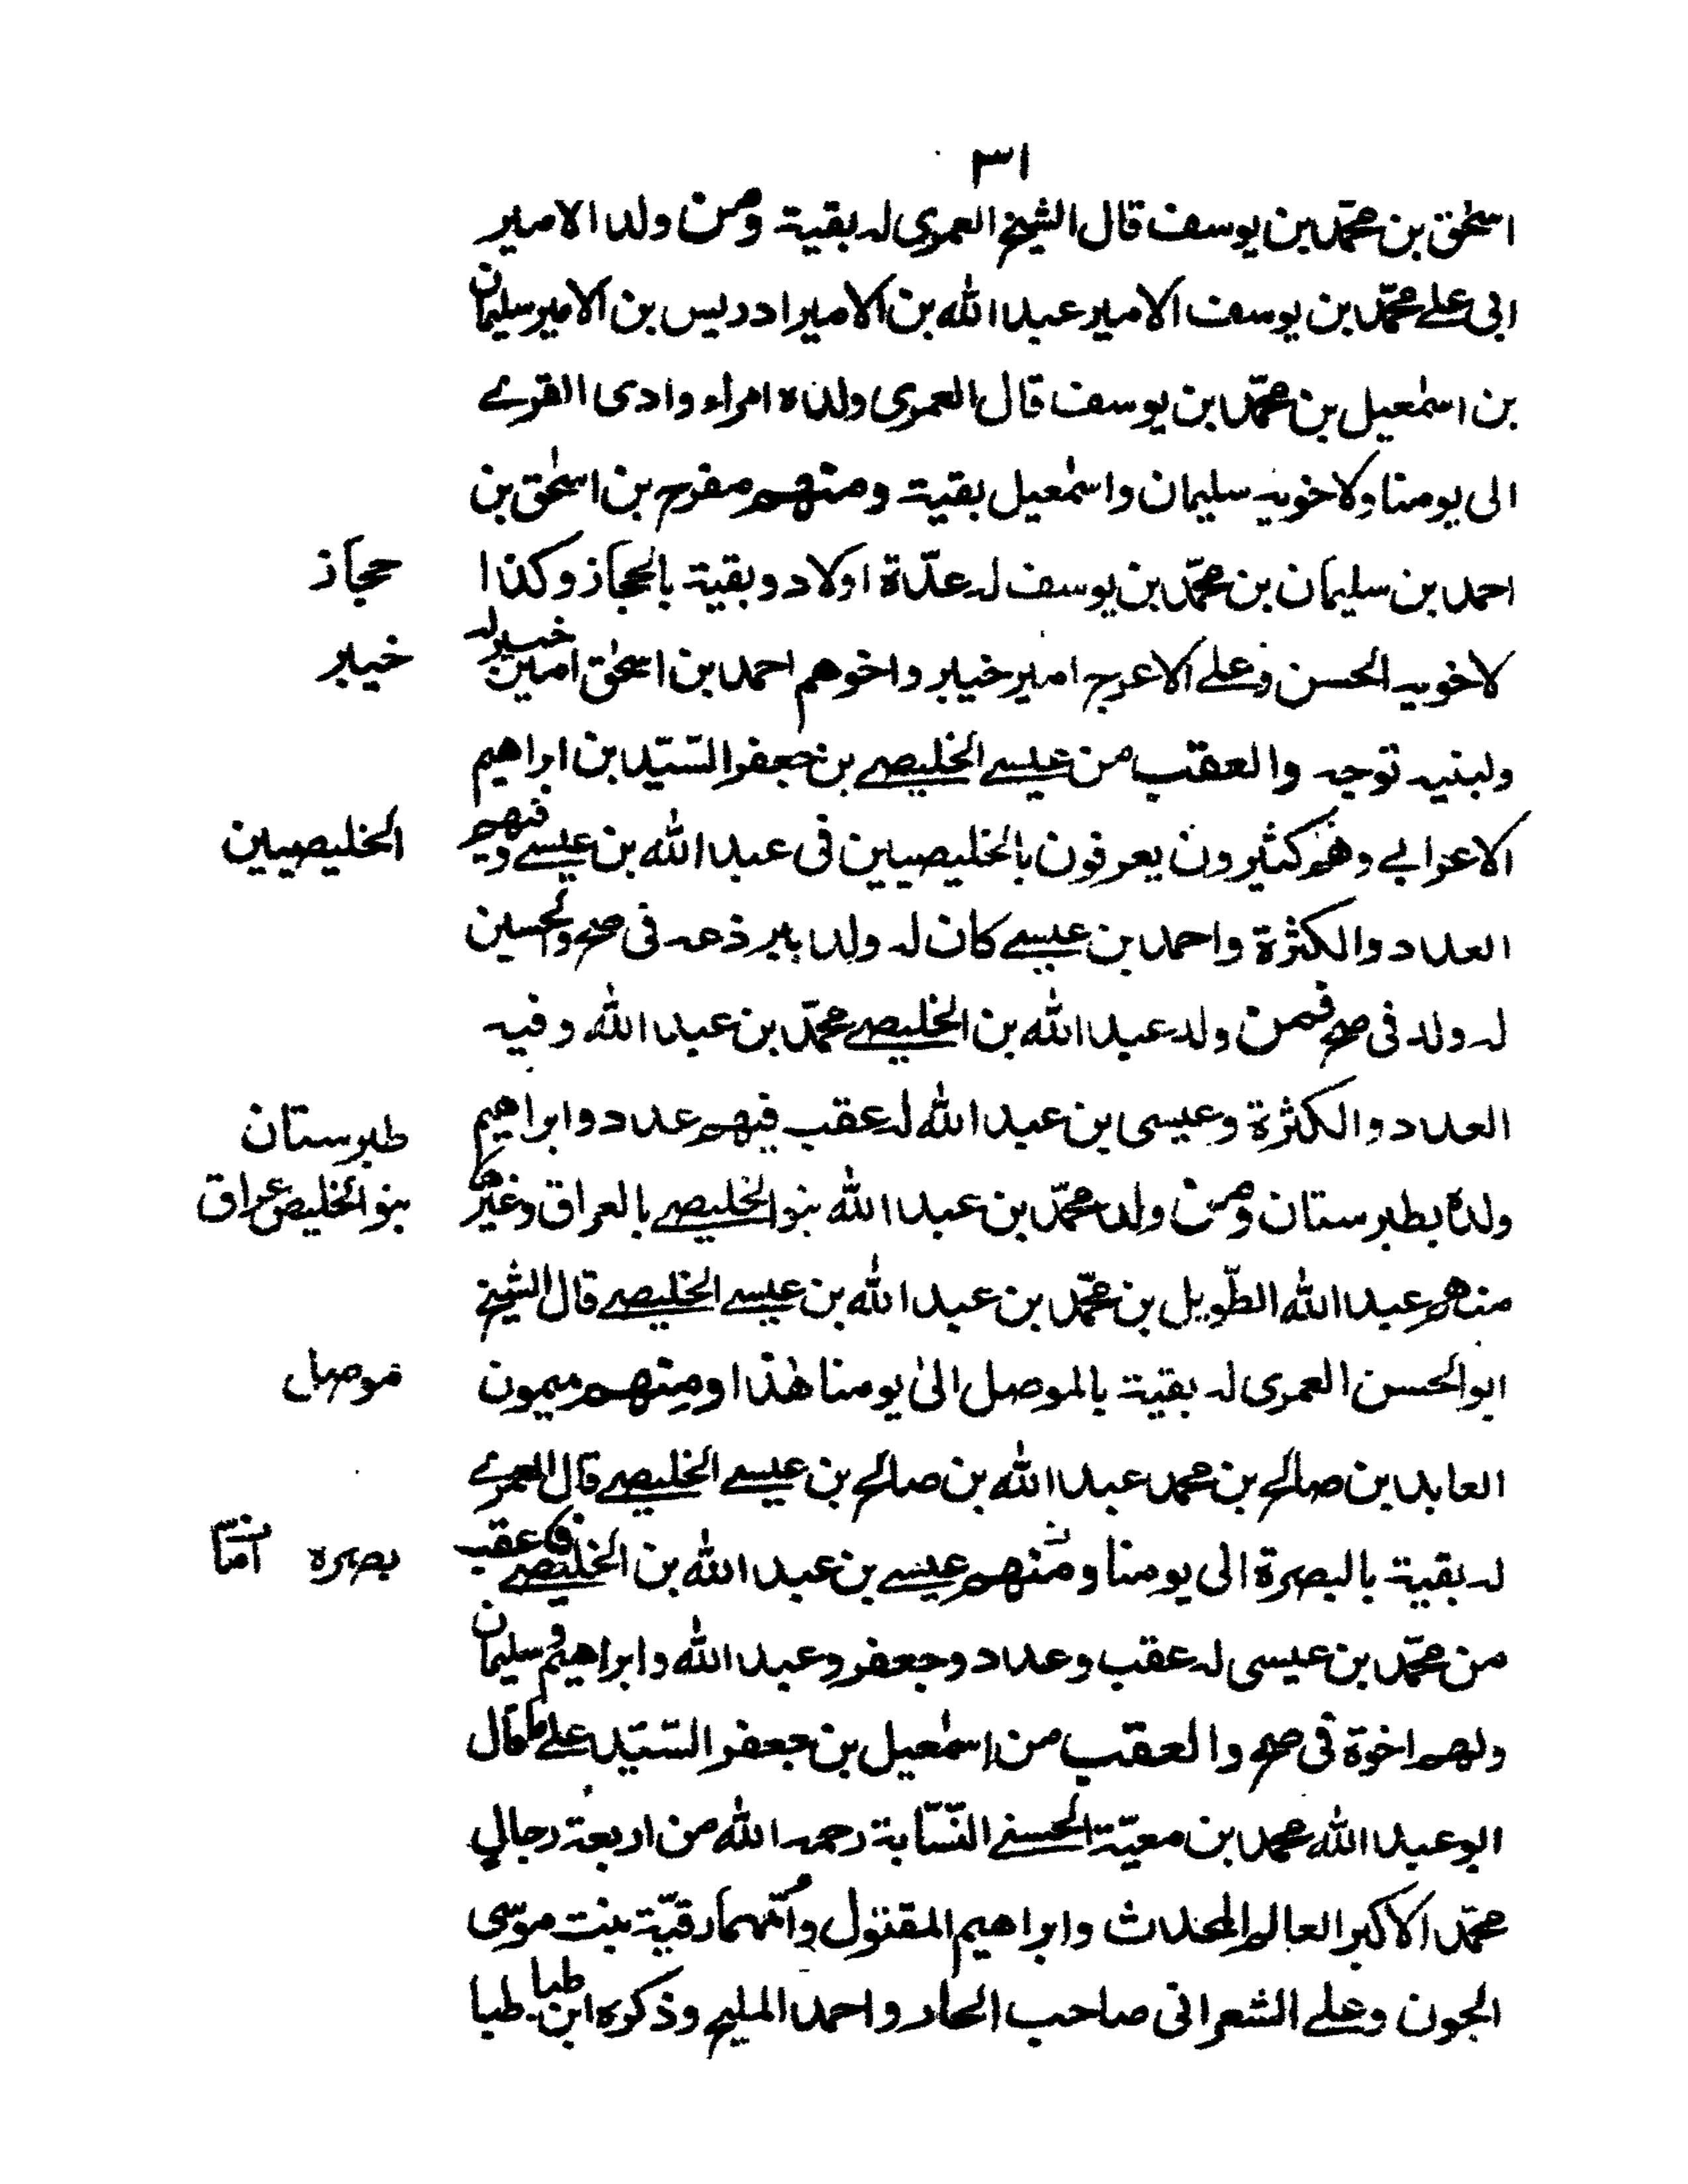 ٣١
اسحٰق بن محمّد بن يوسف قال الشيخ العمرى له بقية ومن ولد الامير
ابى على محمّد بن يوسف الامير عبد الله بن الامير ادريس بن الامير سليمان
بن اسمٰعيل بن محمّد بن يوسف قال العمرى ولده امراء وادى القرى
الى يومنا ولاخويه سليمان واسمٰعيل بقية ومنهم مفرح بن اسحٰق بن
احمد بن سليمان بن محمّد بن يوسف له عدّة اولاد وبقية بالحجاز وكذا
حجاز
لاخويه الحسن وعلى الاعرج امير خيبر واخوهم احمد بن اسحٰق امير خيبر له
خيبر
ولبنيه توجه والعقب من عيسى الخليصى بن جعفر السّيّد بن ابراهيم
الاعرابى وهم كثيرون يعرفون بالخليصيين فى عبد الله بن عيسى وفيهم
الخليصيين
العدد والكثرة واحمد بن عيسى كان له ولد ببرذعه فى صح والحسين
له ولد فى صح فمن ولد عبد الله بن الخليصى محمّد بن عبد الله وفيه
العدد والكثرة وعيسى بن عبد الله له عقب فيهم عدد وابراهيم
طبرستان
ولده بطبرستان ومن ولد محمّد بن عبد الله بنو الخليصى بالعراق وغيرها
بنو الخليص عراق
منهم عبد الله الطّويل بن محمّد بن عبد الله بن عيسى الخليصى قال الشيخ
ابو الحسن العمرى له بقية بالموصل الىٰ يومنا هٰذا ومنهم ميمون
موصل
العابد بن صالح بن محمد عبد الله بن صالح بن عيسى الخليصى قال العمرى
له بقية بالبصرة الى يومنا ومنهم عيسى بن عبد الله بن الخليصى عقب
بصره
من محمّد بن عيسى له عقب وعدد وجعفر وعبد الله وابراهيم وسليمان
ولهم اخوة فى صح والعقب من اسمٰعيل بن جعفر السّيّد على قال
ابو عبد الله محمد بن معيّة الحسنى النّسّابة رحمه الله من اربعة رجال
محمّد الاكبر العالم المحدث وابراهيم المقتول وأمّهما رقيّة بنت موسى
الجون وعلى الشعرانى صاحب الجار واحمد المليح وذكره ابن طباطبا